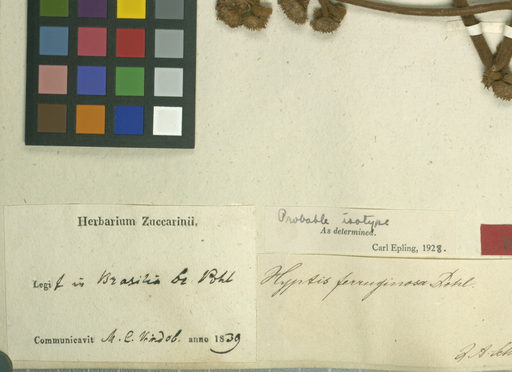 Herbarium Zuccarinii.
Legi f in Brasilia Dr Pohl
Communicavit M. C. Vindob. anno 1839
Probable isotype
As determined.
Carl Epling, 1928.
Hyptis ferruginosa Pohl.